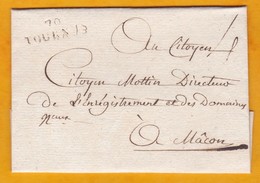 70
TOURNUS
Au Citoyen
Citoyen Mottin Directeur
de L'Enregistrement et des Domaines
à Mâcon